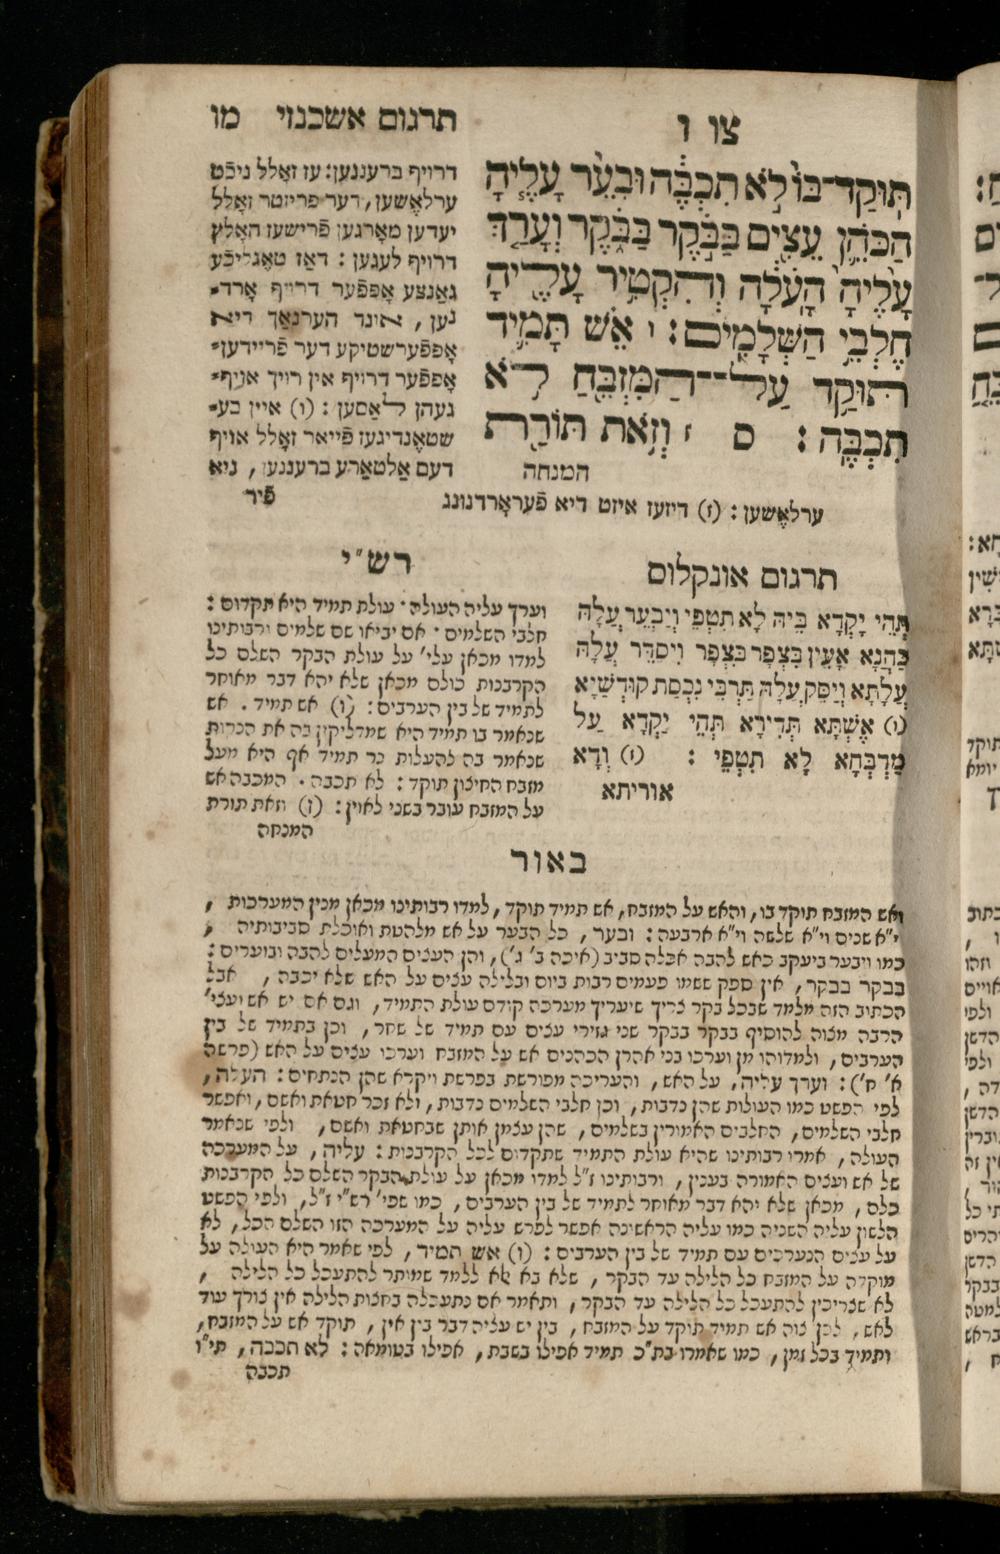 צו ו
תרגום אשכנזי מו
תּֽוּקַד־בּוֹ֙ לֹ֣א תִכְבֶּ֔ה וּבִעֵ֨ר עָלֶ֧יהָ
הַכֹּהֵ֛ן עֵצִ֖ים בַּבֹּ֣קֶר בַּבֹּ֑קֶר וְעָרַ֤ךְ
עָלֶ֙יהָ֙ הָֽעֹלָ֔ה וְהִקְטִ֥יר עָלֶ֖יהָ
חֶלְבֵ֥י הַשְּׁלָמִֽים : ו אֵ֗שׁ תָּמִ֛יד
תּוּקַ֥ד עַל־־הַמִּזְבֵּ֖חַ לֹ֥א
תִכְבֶּֽה : ס ז וְזֹ֥את תּוֹרַ֖ת
המנחה
דרויף ברעננען: עז זאָלל ניכֿט
ערלאָשען, דער פריזטר זאָלל
יעדען מאָרגען פֿרישעז האָלץ
דרויף לעגען : דאַז טאָגליכֿע
גאַנצע אָפּפֿער דרויף אָרד⸗
נען , אונד הערנאַך דיא
אָפּפֿערשטיקע דער פֿריידען⸗
אָפּפֿער דרויף אין רויך אויף⸗
געהן לאַסען : (ו) איין בע⸗
שטאָנדיגעז פֿייאר זאָלל אויף
דעם אַלטאַרע ברעננען , ניא
ערלאָשען : (ז) דיזעז איזט דיא פֿעראָרדנונג
פֿיר
תרגום אונקלוס
תְּהֵי יָקְדָא בֵּיהּ לָא תִטְפֵי וְיַבְעֵר עֲלַהּ
כַּהֲנָא אָעִין בִּצְפַר בִּצְפָר וִיסַדֵּר עֲלַהּ
עֲלָתָא וְיַסֵּק עֲלַהּ תַּרְבֵּי נִכְסַת קוּדְשַׁיָּא
(ו) אֶשָּׁתָא תְּדִירָא תְּהֵי יָקְדָא עַל
מַדְבְּחָא לָא תִטְפֵי : (ז) וְדָא
אוריתא
רש"י
וערך עליה העולה · עולת תמיד היא תקדום :
חלבי השלמים · אם יביאו שם שלמים ורבותינו
למדו מכאן עלי' על עולת הבקר השלם כל
הקרבנות כולם מכאן שלא יהא דבר מאוחר
לתמיד של בין הערבים : (ו) אש תמיד . אש
שנאמר בו תמיד היא שמדליקין בה את הנרות
שנאמר בה להעלות נר תמיד אף היא מעל
מזבח החיצון תוקד : לא תכבה . המכבה אש
על המזבח עובר בשני לאוין : (ז) וזאת תורת
המנחה
באור
ואש המזבח תוקד בו , והאש על המזבח , אש תמיד תוקד , למדו רבותינו מכאן מנין המערכות ,
י"א שנים וי"א שלשה וי"א ארבעה : ובער , כל הבער על אש מלהטת ואוכלת סביבותיה ,
כמו ויבער ביעקב כאש להבה אכלה סביב (איכה ב' ג') , והן העצים המעלים להבה ובוערים :
בבקר בבקר , אין ספק ששמו פעמים רבות ביום ובלילה עצים על האש שלא יכבה , אבל
הכתוב הזה מלמד שבכל בקר צריך שיעריך מערכה קודם עולת התמיד , וגם אם יש אש ועצי'
הרבה מצוה להוסיף בבקר בבקר שני גזירי עצים עם תמיד של שחר , וכן בתמיד של בין
הערבים , ולמדוהו מן וערכו בני אהרן הכהנים אש על המזבח וערכו עצים על האש (פרשה
א' ח') : וערך עליה , על האש , והעריכה מפורשת בפרשת ויקרא שהן הנתחים : העלה ,
לפי הפשט כמו העולות שהן נדבות , וכן חלבי השלמים נדבות , ולא זכר חטאת ואשם , ואפשר
חלבי השלמים , החלבים האמורין בשלמים , שהן עצמן אותן שבחטאת ואשם , ולפי שנאמר
העולה , אמרו רבותינו שהיא עולת התמיד שתקדום לכל הקרבנות : עליה , על המערכה
של אש ועצים האמורה בענין , ורבותינו ז"ל למדו מכאן על עולת הבקר השלם כל הקרבנות
כלם , מכאן שלא יהא דבר מאוחר לתמיד של בין הערבים , כמו שפי' רש"י ז"ל , ולפי הפשט
הלשון עליה השניה כמו עליה הראשינה אפשר לפרש עליה על המערכה הזו השלם הכל , לא
על עצים הנערכים עם תמיד של בין הערבים : (ו) אש תמיד , לפי שאמר היא העולה על
מוקדה על המזבח כל הלילה עד הבקר , שלא בא אלא ללמד שמותר להתעכל כל הלילה ,
לא שצריכין להתעכל כל הלילה עד הבקר , ותאמר אם נתעכלה בחצות הלילה אין צורך עוד
לאש , לכן צוה אש תמיד תוקד על המזבח , בין יש עליה דבר בין אין , תוקד אש על המזבח ,
ותמיד בכל זמן , כמו שאמרו בת"כ תמיד אפילו בשבת , אפילו בטומאה : לא תכבה , תי"ו
תכבה